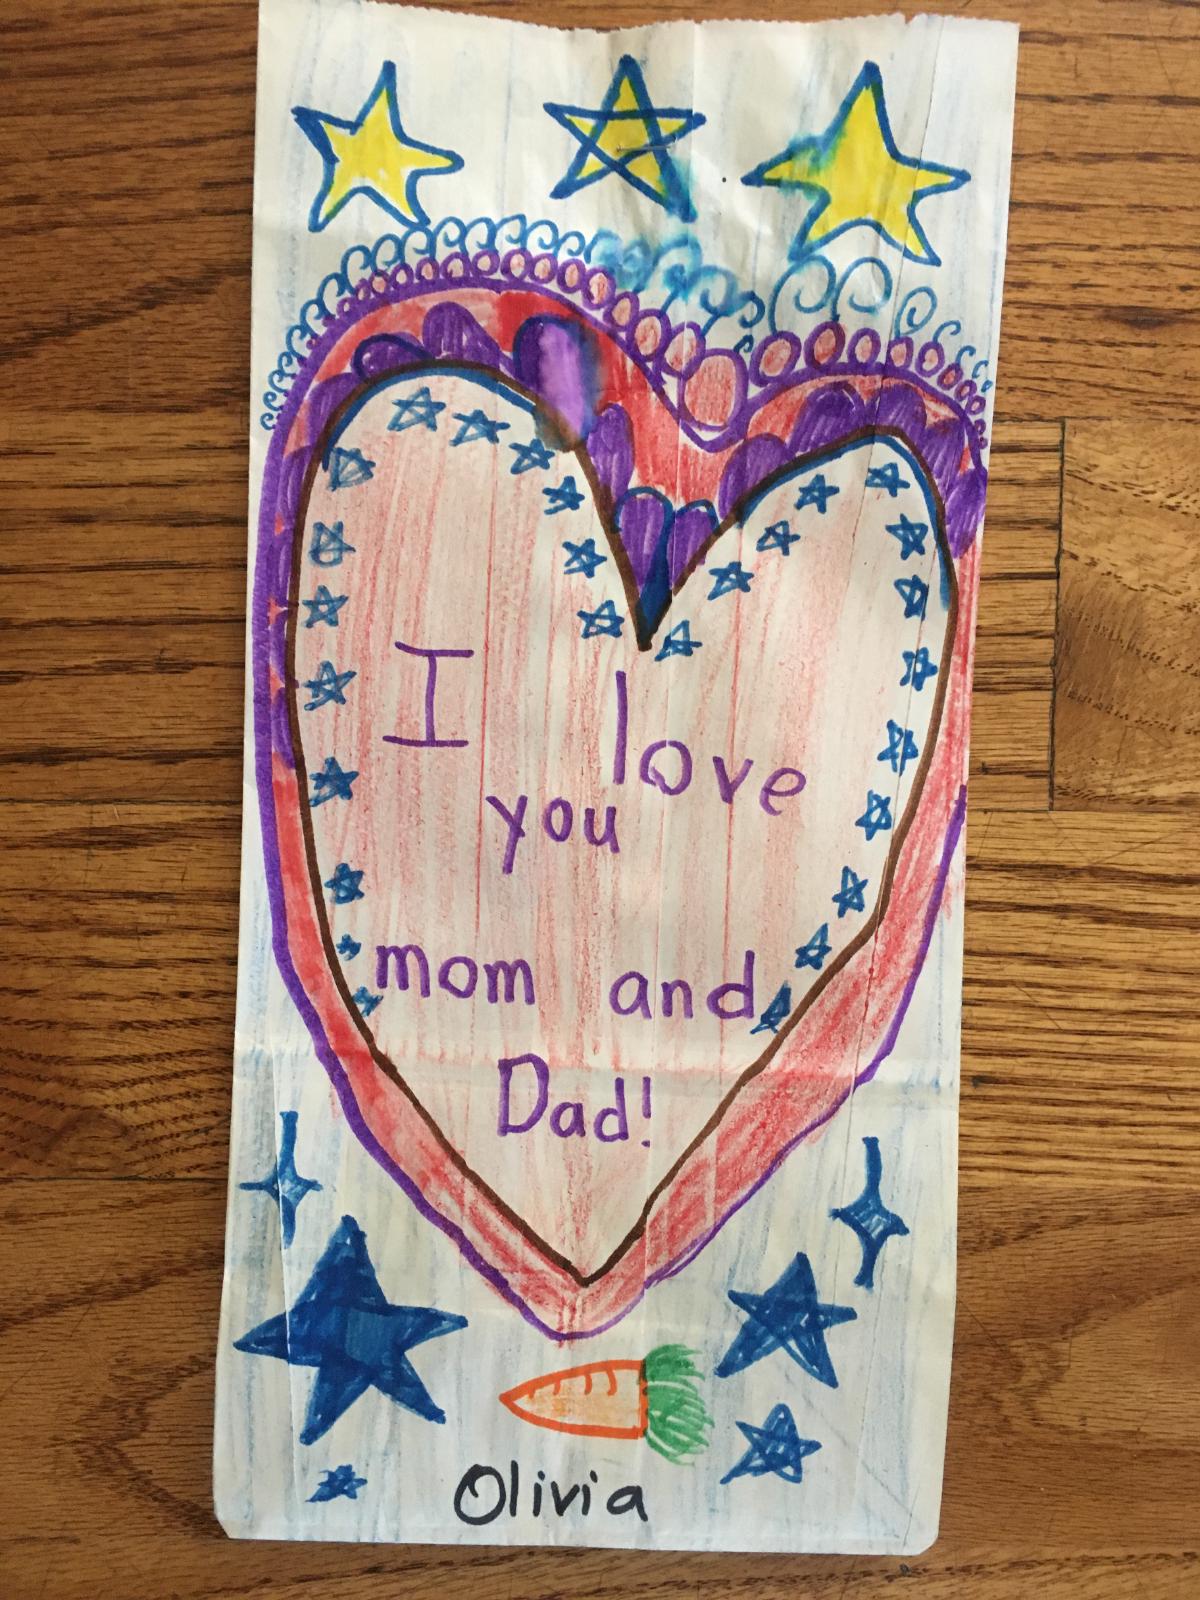 I love
you
mom and
Dad!
Olivia